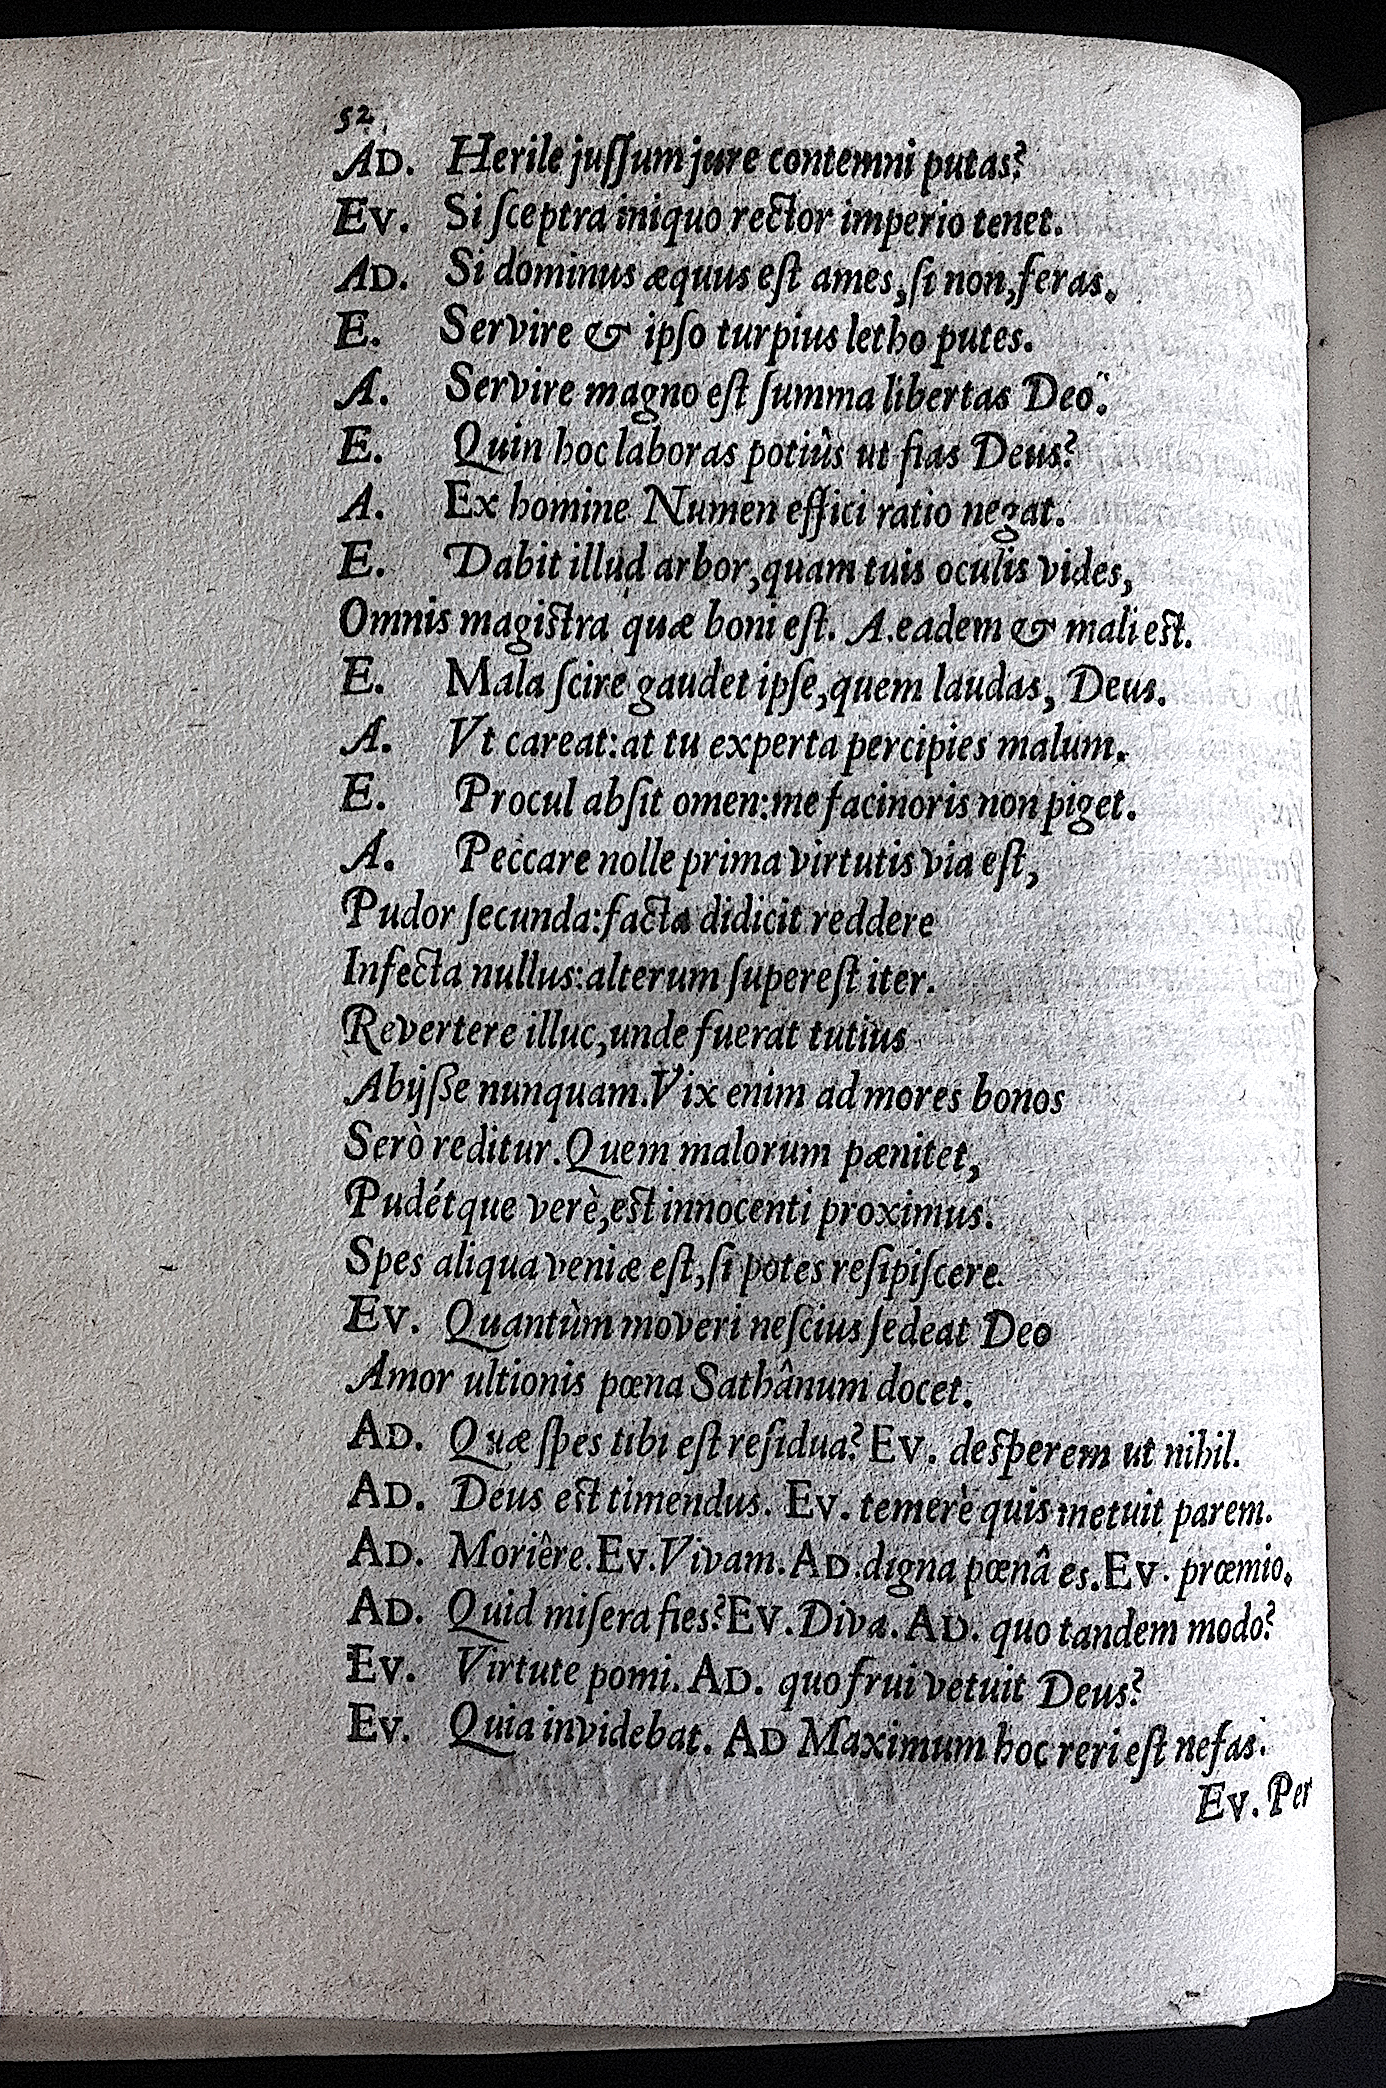 52
AD. Herile juſſum jure contemni putas?
EV. Si ſceptra iniquo rector imperio tenet.
AD. Si dominus æquus eſt ames, ſi non, feras.
E. Servire & ipſo turpius letho putes.
A. Servire magno eſt ſumma libertas Deo.
E. Quin hoc laboras potiùs ut fias Deus?
A. Ex homine Numen effici ratio negat.
E. Dabit illud arbor, quam tuis oculis vides,
Omnis magiſtra quæ boni eſt. A. eadem & mali eſt.
E. Mala ſcire gaudet ipſe, quem laudas, Deus.
A. Vt careat: at tu experta percipies malum.
E. Procul abſit omen: me facinoris non piget.
A. Peccare nolle prima virtutis via eſt,
Pudor ſecunda: facta didicit reddere
Infecta nullus: alterum ſupereſt iter.
Revertere illuc, unde fuerat tutius
Abijſſe nunquam. Vix enim ad mores bonos
Serò reditur. Quem malorum pænitet,
Pudétque verè, eſt innocenti proximus.
Spes aliqua veniæ eſt, ſi potes reſipiſcere.
EV. Quantùm moveri neſcius ſedeat Deo
Amor ultionis pœna Sathânum docet.
AD. Quæ ſpes tibi eſt reſidua? EV. deſperem ut nihil.
AD. Deus eſt timendus. EV. temerè quis metuit parem.
AD. Moriêre. EV. Vivam. AD. digna pœnâ es. EV. præmio.
AD. Quid miſera fies? EV. Diva. AD. quo tandem modo?
EV. Virtute pomi. AD. quo frui vetuit Deus?
EV. Quia invidebat. AD Maximum hoc reri eſt nefas.
EV. Per